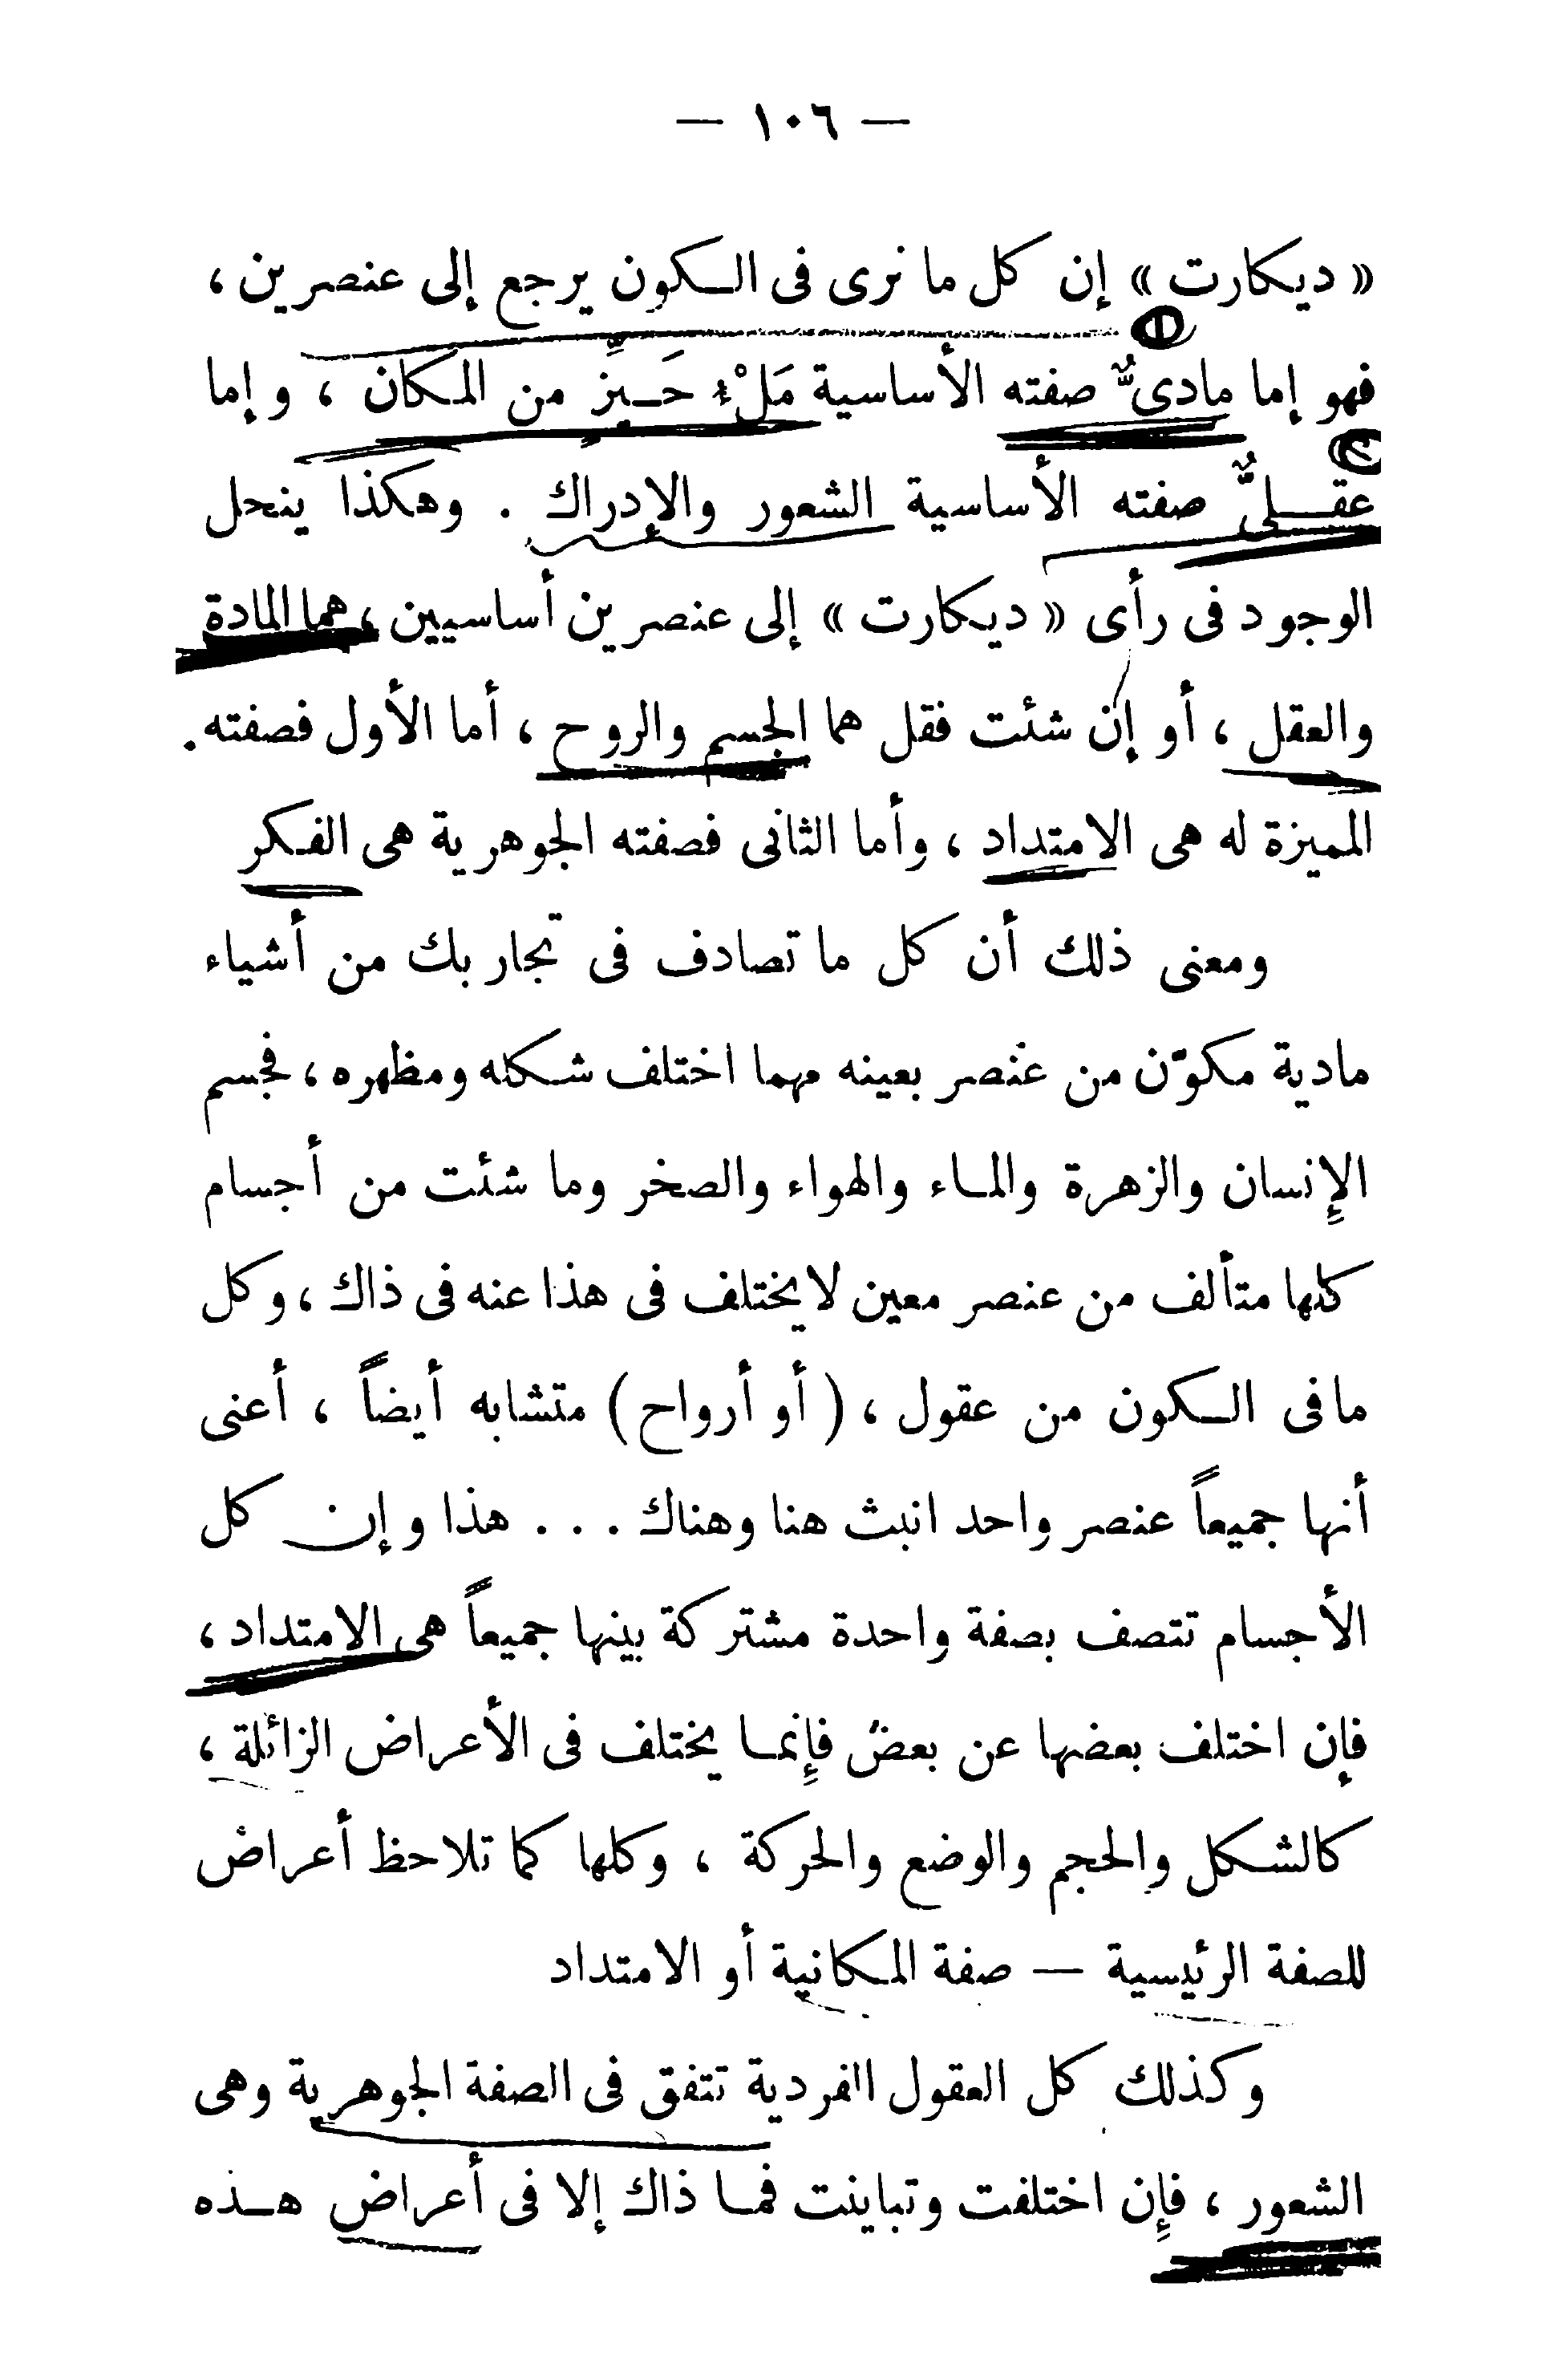 — ١٠٦ —
« ديكارت » إن كل ما نرى فى الكون يرجع إلى عنصرين ،
١
فهو إما مادىٌّ صفته الأساسية مَلْء حَيِّزٍ من المكان ، وإما
٢
عقلىٌّ صفته الأساسية الشعور والإدراك . وهكذا ينحل
الوجود فى رأى « ديكارت » إلى عنصرين أساسيين ، هما المادة
والعقل ، أو إن شئت فقل هما الجسم والروح ، أما الأول فصفته
المميزة له هى الامتداد ، وأما الثانى فصفته الجوهرية هى الفكر
ومعنى ذلك أن كل ما تصادف فى تجاربك من أشياء
مادية مكوّن من عنصر بعينه مهما اختلف شكله ومظهره ، فجسم
الإِنسان والزهرة والماء والهواء والصخر وما شئت من أجسام
كلها متألف من عنصر معين لا يختلف فى هذا عنه فى ذاك ، وكل
ما فى الكون من عقول ، ( أو أرواح ) متشابه أيضاً ، أعنى
أنها جميعاً عنصر واحد انبث هنا وهناك . . . هذا وإن كل
الأجسام تتصف بصفة واحدة مشتركة بينها جميعاً هى الامتداد ،
فإن اختلف بعضها عن بعض فإِنما يختلف فى الأعراض الزائلة ،
كالشكل والحجم والوضع والحركة ، وكلها كما تلاحظ أعراض
للصفة الرئيسية — صفة المكانية أو الامتداد
وكذلك كل العقول الفردية تتفق فى الصفة الجوهرية وهى
الشعور ، فإِن اختلفت وتباينت فما ذاك إلا فى أعراض هذه